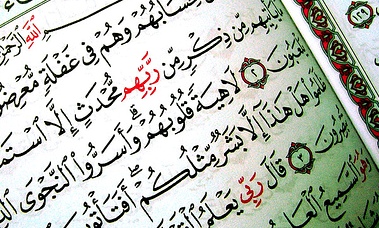 ٱللَّهِ ٱلرَّحْمَٰ
حِسَابُهُمْ وَهُمْ فِى غَفْلَةٍ مُّعْرِضُ
يَأْتِيهِم مِّن ذِكْرٍ مِّن رَّبِّهِم مُّحْدَثٍ إِلَّا ٱسْتَمَ
يَلْعَبُونَ ٢ لَاهِيَةً قُلُوبُهُمْ وَأَسَرُّوا۟ ٱلنَّجْوَى ٱلَّ
ظَلَمُوا۟ هَلْ هَٰذَآ إِلَّا بَشَرٌ مِّثْلُكُمْ أَفَتَأْتُو
تُبْصِرُونَ ٣ قَالَ رَبِّى يَعْلَمُ ٱلْقَ
وَهُوَ ٱلسَّمِيعُ ٱلْعَلِ